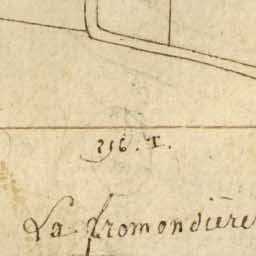 216. T.
La fromondière